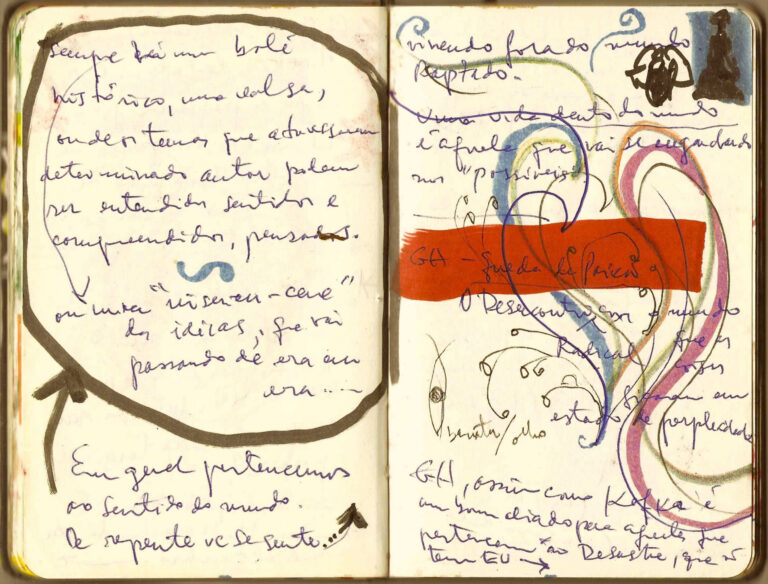 sempre há um balé
histórico, uma valsa,
onde os temas que atravessam
determinado autor podem
ser entendidos sentidos e
compreendidos, pensados.
ou numa "mise en-cene"
das idéias, que vai
passando de era em
era....
Em geral pertencemos
ao sentido do mundo.
De repente vc se sente...
vivendo fora do mundo
Raptado.
Uma vida dentro do mundo
é aquela que vai se engendrando
nos "possíveis"
GH - Queda da Paixão
O Desencontro com o mundo
Radical que as
coisas
ficaram em
estado de perplexidade
olho
GH, assim como Kafka é
um bom aliado para aqueles que
pertencem ao Desastre, que
tem EU →